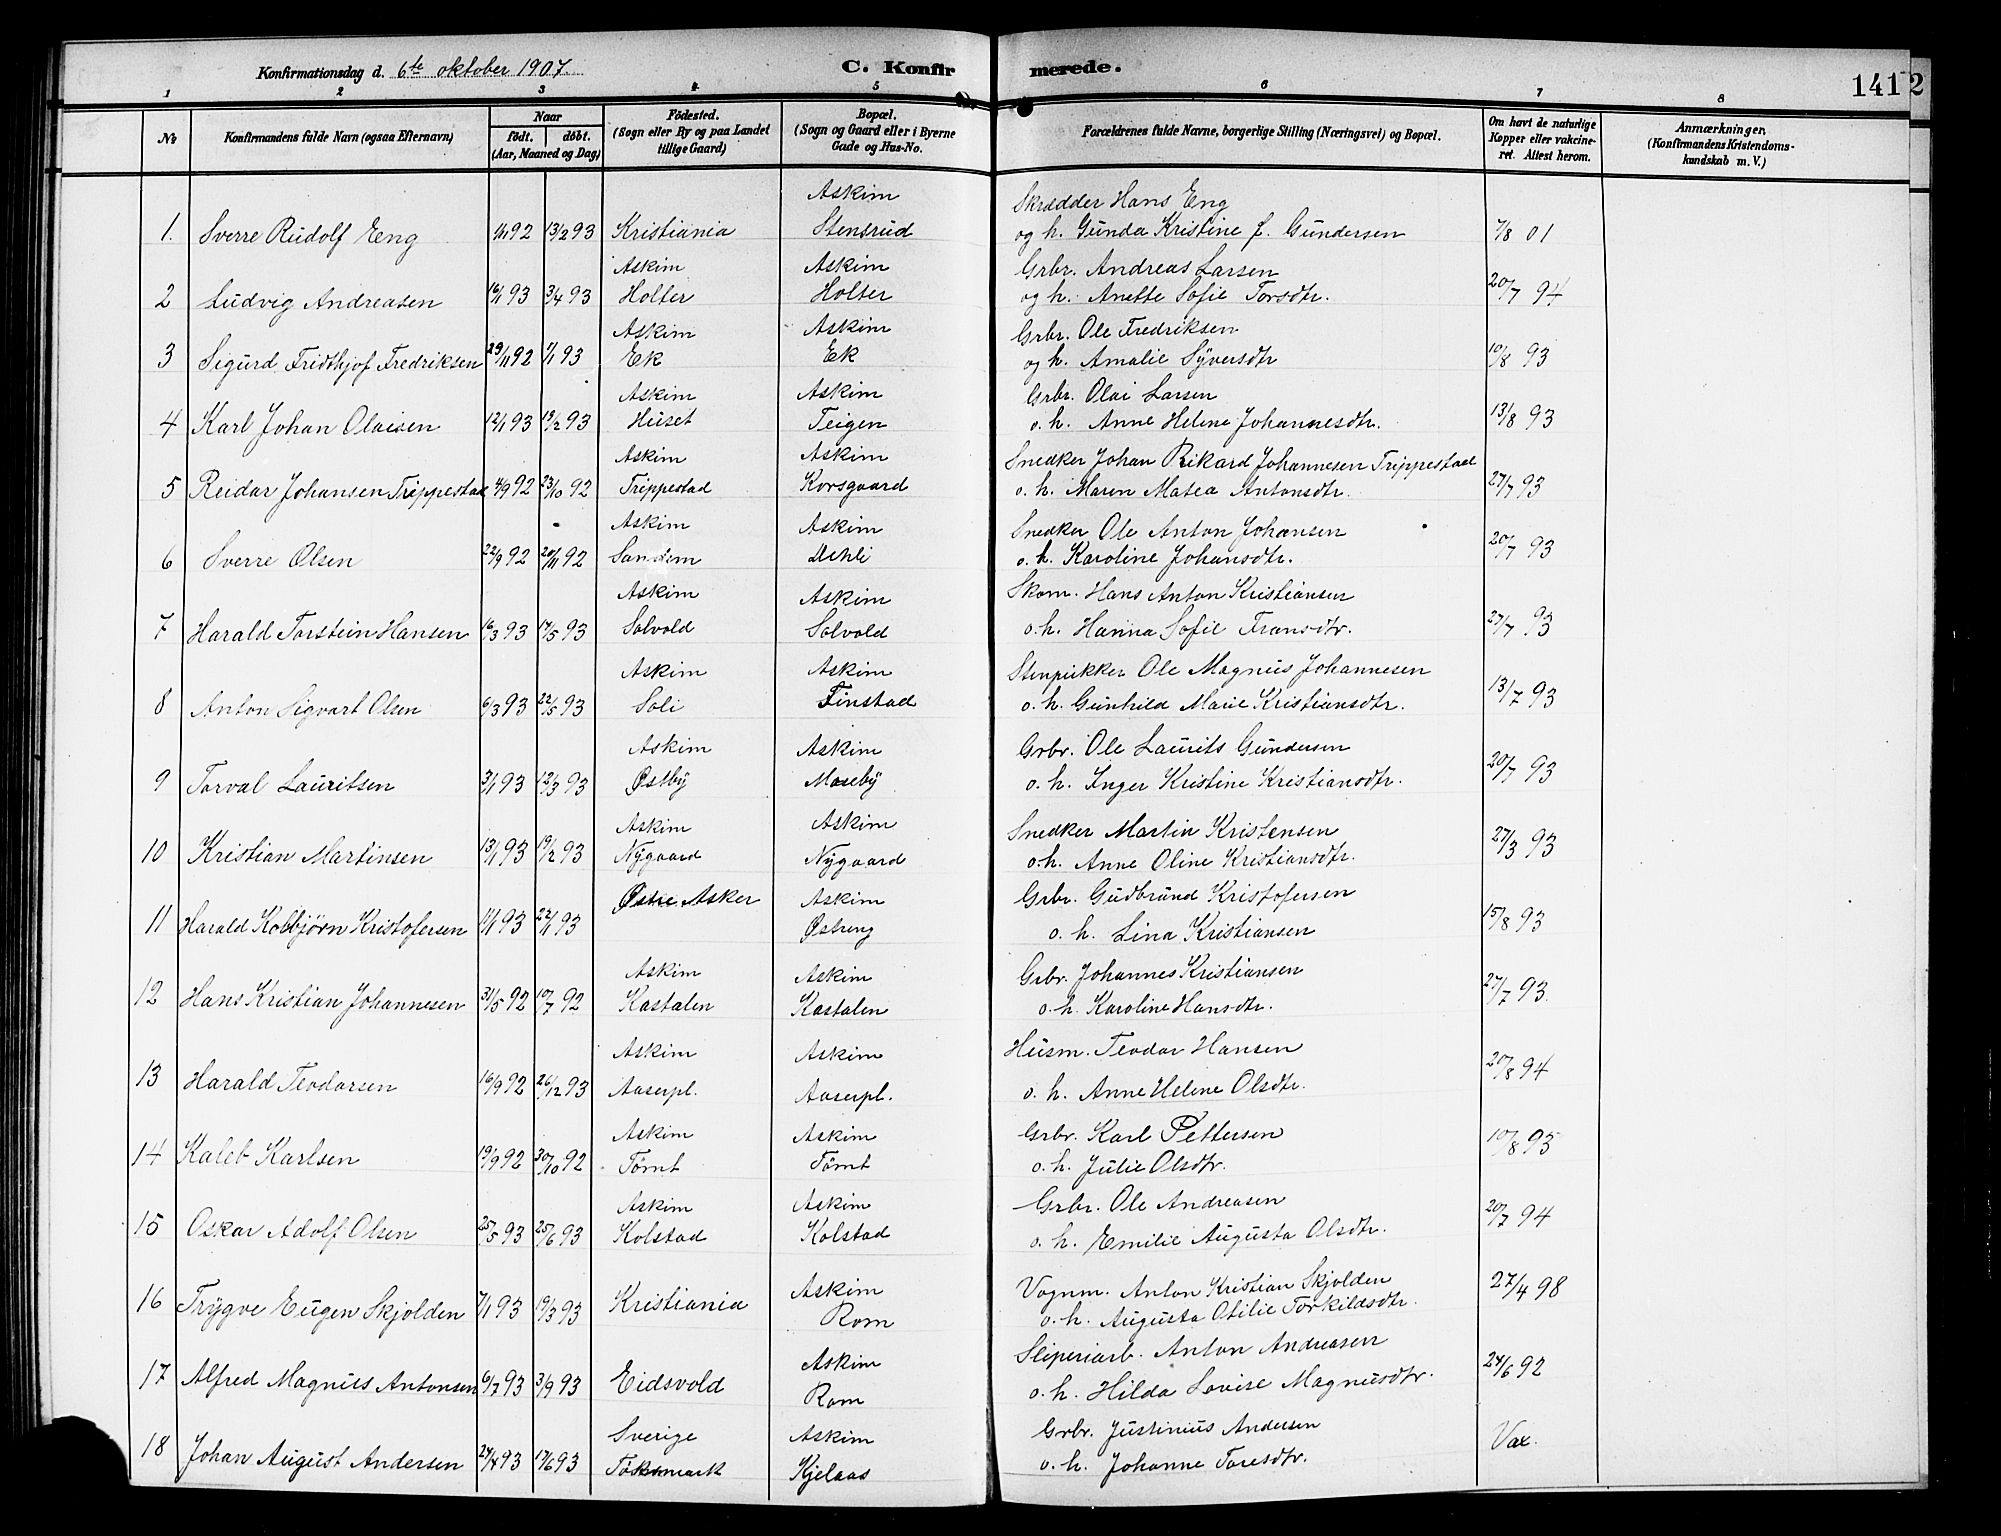 Konfirmationsdag d. 6te oktober 1907.
C. Konfirmerede.
141
2
1 2 3 4 5 6 7 8
No
Konfirmandens fulde Navn (ogsaa Efternavn)
Naar
födt. döbt.
(Aar, Maaned og Dag)
Födested.
(Sogn eller By og paa Landet
tillige Gaard)
Bopæl.
(Sogn og Gaard eller i Byerne
Gade og Hus-No.
Forældrenes fulde Navne, borgerlige Stilling (Næringsvei) og Bopæl.
Om havt de naturlige
Kopper eller vakcine-
ret. Attest herom.
Anmærkninger,
(Konfirmandens Kristendoms-
kundskab m. V.)
Askim Skrædder Hans Eng
1. Sverre Rudolf Eng 92 13/2 93 Kristiania Stensrud og h. Gunda Kristine f. Gundersen 7/8 01
Askim Askim Grbr. Andreas Larsen
2 Ludvig Andreasen 16/1 93 3/4 93 Holter Holter og h. Anette Sofie Torsdtr. 20/7 94
Askim Askim Grbr. Ole Fredriksen
3 Sigurd Fridthjof Fredriksen 29/11 92 1/1 93 Ek Ek og h. Amalie Syversdtr 10/8 93
Askim Askim Grbr. Olai Larsen
4 Karl Johan Olaisen 12/1 93 19/2 93 Huset Teigen o. h. Anne Helene Johannesdtr. 13/8 93
Askim Askim Snedker Johan Rikard Johannesen Trippestad
5 Reidar Johansen Trippestad 4/9 92 23/10 92 Trippestad Korsgaard o. h. Maren Matea Antonsdtr. 27/7 93
Askim Askim Snedker Ole Anton Johansen
6 Sverre Olsen 22/9 92 20/11 92 Sandem Dehli o. h. Karoline Johansdtr. 20/7 93
Askim Askim Skom. Hans Anton Kristiansen
7 Harald Torstein Hansen 16/3 93 14/5 93 Solvold Solvold o. h. Hanna Sofie Fransdtr. 27/7 93
Askim Askim Stenpikker Ole Magnus Johannesen
8 Anton Sigvart Olsen 6/3 93 22/5 93 Soli Finstad o. h. Gunhild Marie Kristiansdtr. 13/7 93
Askim Askim Grbr. Ole Laurits Gundersen
9 Torval Lauritsen 3/1 93 12/3 93 Østby Moseby o. h. Inger Kristine Kristiansdtr. 20/7 93
Askim Askim Snedker Martin Kristensen
10 Kristian Martinsen 13/1 93 19/2 93 Nygaard Nygaard o. h. Anne Oline Kristiansdtr. 27/3 93
Østre Asker Askim Grbr. Gudbrund Kristofersen
11 Harald Kolbjørn Kristofersen 11/1 93 22/1 93 Østreng o. h. Lina Kristiansen 15/8 93
Askim Askim Grbr. Johannes Kristiansen
12 Hans Kristian Johannesen 31/5 92 10/7 92 Kastalen Kastalen o. h. Karoline Hansdtr. 27/7 93.
Askim Askim Husm. Teodor Hansen
13 Harald Teodorsen 16/9 92 26/12 93 Aaserpl. Aaserpl. o. h. Anne Helene Olsdtr. 20/8 94
Askim Askim Grbr. Karl Pettersen
14 Kaleb Karlsen 19/9 92 30/10 92 Tömt Tömt o. h. Julie Olsdtr. 10/8 95
Askim Askim Grbr. Ole Andreasen
15 Oskar Adolf Olsen 25/5 93 25/6 93 Kolstad Kolstad o. h. Emilie Augusta Olsdtr. 20/7 94
Askim Vognm. Anton Kristian Skjolden
16 Trygve Eugen Skjolden 7/1 93 19/3 93 Kristiania Rom o. h. Augusta Otilie Torkildsdtr. 27/4 98
Askim Sliperiarb. Anton Andreasen
17 Alfred Magnus Antonsen 6/7 93 3/9 93 Eidsvold Rom o. h. Hilda Lovise Magnusdtr. 24/6 92
Sverige Askim Grbr. Justinius Andersen
18 Johan August Andersen 24/4 93 1/6 93 Töksmark Kjelaas o. h. Johanne Toresdtr. Vax.